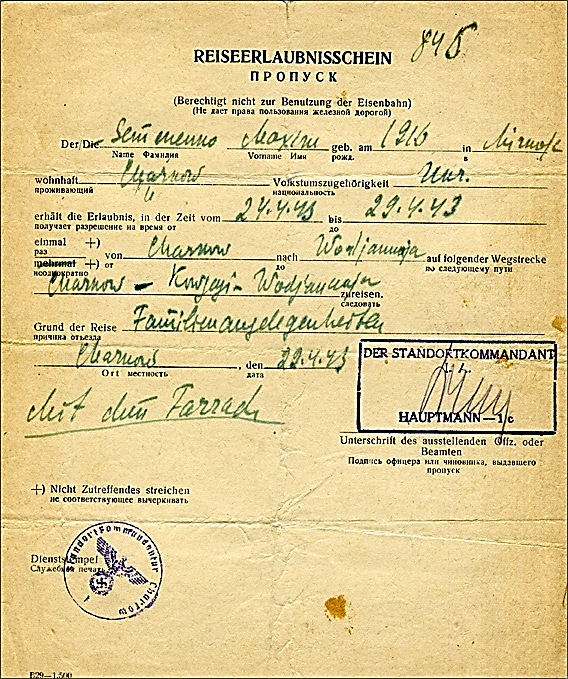 845
REISEERLAUBNISSCHEIN
ПРОПУСК
(Berechtigt nicht zur Benutzung der Eisenbahn)
(Не дает права пользования железной дорогой)
Der/Die Maxim geb. am 1916 in
Name Фамилия Vorname Имя рожд. в
wohnhaft Charkow Volkstumszugehörigkeit Ukr.
проживающий национальность
erhält die Erlaubnis, in der Zeit vom 24.4.43 bis 29.4.43
получает разрешение на время от до
einmal +) von Charkow nach Wodjannaja auf folgender Wegstrecke
раз
mehrmal +) от до по следующему пути
неоднократно
Charkow – – Wodjannaja zureisen.
следовать
Grund der Reise Familienangelegenheiten
причина отъезда
Charkow, den 22.4.43
Ort местность дата
DER STANDORTKOMMANDANT
HAUPTMANN
mit dem Farrad
Unterschrift des ausstellenden Offz. oder
Beamten
Подпись офицера или чиновника, выдавшего
пропуск
+) Nicht Zutreffendes streichen
не соответствующее вычеркивать
Dienststempel
Служебная печать
Standortkommandantur Charkow
B29—1.500